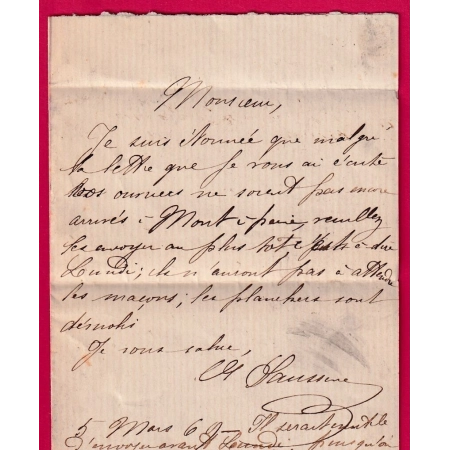 Monsieur,
Je suis étonnée que malgré
la lettre que je vous ai écrite
vos ouvriers ne soient pas encore
arrivés à Mont à paine, veuillez
les envoyer au plus tôt c'est à dire
Lundi; ils n'auront pas à attendre
les maçons; les planchers sont
démolis
Je vous salue,
Saussure
5 Mars 6 Il serait inutile
d'envoyer avant Lundi, puisqu'à